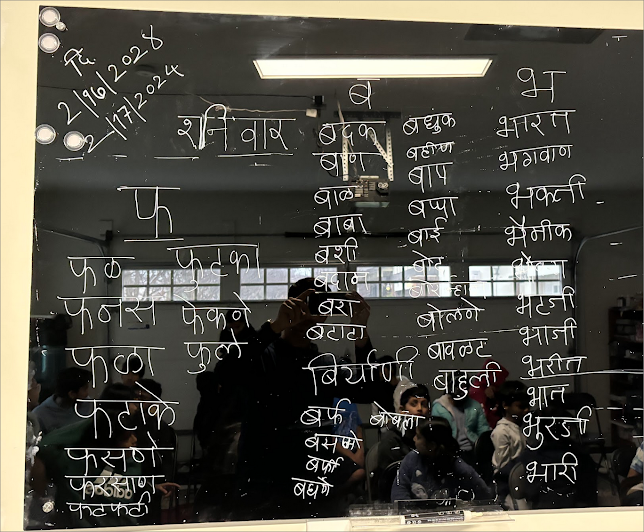 दि
2/16/2028
2/17/2024
शनिवार
फ
फळ
फनस
फळा
फटाके
फसणे
फटफटी
फुटका
फेकणे
फुले
ब
बदक
बाण
बाळ
बाबा
बशी
बरा
बटाटा
बिर्याणी
बर्फ
बसणे
बर्फी
बघणे
बहीण
बाप
बाप्पा
बाई
बोट
बोलणे
बावळट
बाहुली
बोबला
भ
भारत
भगवान
भक्ती
भटजी
भाजी
भरीत
भात
भुरजी
भारी